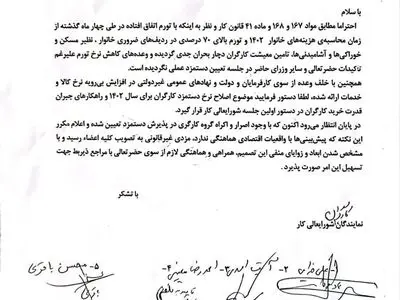 با سلام
احتراما مطابق مواد ۱۶۷ و ۱۶۸ و ماده ۴۱ قانون کار و نظر به اینکه با تورم اتفاق افتاده در طی چهار ماه گذشته از
زمان محاسبه‌ی هزینه‌های خانوار ۱۴۰۲ و تورم بالای ۷۰ درصدی در ردیف‌های ضروری خانوار ، نظیر مسکن و
خوراکی‌ها و آشامیدنی‌ها، تامین معیشت کارگران دچار بحران جدی گردیده و وعده‌های کاهش نرخ تورم علیرغم
تاکیدات حضرتعالی و سایر وزرای حاضر در جلسه تعیین دستمزد عملی نگردیده است.
همچنین با خلف وعده از سوی کارفرمایان و دولت و نهادهای عمومی غیردولتی در افزایش بی‌رویه نرخ کالا و
خدمات ارائه شده، لطفا دستور فرمایید موضوع اصلاح نرخ دستمزد کارگران برای سال ۱۴۰۲ و راهکارهای جبران
قدرت خرید کارگران در دستور اولین جلسه شورایعالی کار قرار گیرد.
در پایان انتظار می‌رود اکنون که با وجود اصرار و اکراه گروه کارگری در پذیرش دستمزد تعیین شده و اعلام مکرر
این نکته که پیش‌بینی‌ها با واقعیات اقتصادی هماهنگی ندارد، مزدی غیرقانونی به تصویب کلیه اعضاء رسید و با
مشخص شدن ابعاد و زوایای منفی این تصمیم، همراهی و هماهنگی لازم از سوی حضرتعالی با مراجع ذیربط جهت
تسهیل این امر صورت پذیرد.
با تشکر
کارگران
نمایندگان شورایعالی کار
۱- علی ۲- آیت اسدی ۳- احمدرضا معینی ۴- ۵- محسن باقری